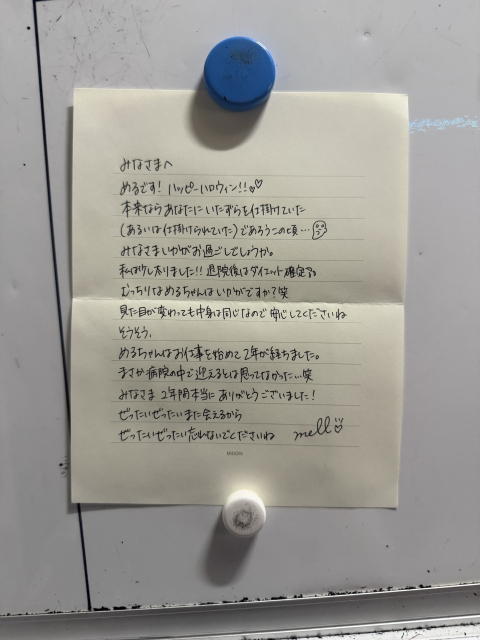 みなさまへ
めるです！ ハッピーハロウィン!!♡
本来ならあなたにいたずらを仕掛けていた
(あるいは仕掛けられていた)であろうこの頃…
みなさまいかがお過ごしでしょうか。
私は少し太りました!! 退院後はダイエット確定です
むっちりなめるちゃんはいかがですか？笑
見た目が変わっても中身は同じなので安心してくださいね
そうそう、
めるちゃんはお仕事を始めて2年が経ちました。
まさか病院の中で迎えるとは思ってなかった…笑
みなさま2年間本当にありがとうございました！
ぜったいぜったいまた会えるから
ぜったいぜったい忘れないでくださいね mell♡
MIDORI